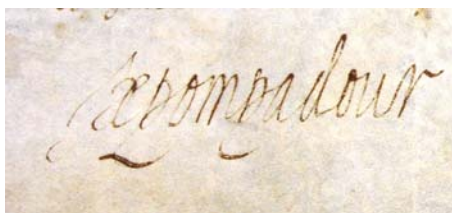 de pompadour